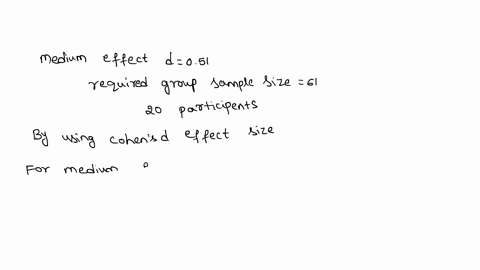 Medium effect d=0.51
required group sample size = 61
20 participents
By using cohen's d effect size
For medium